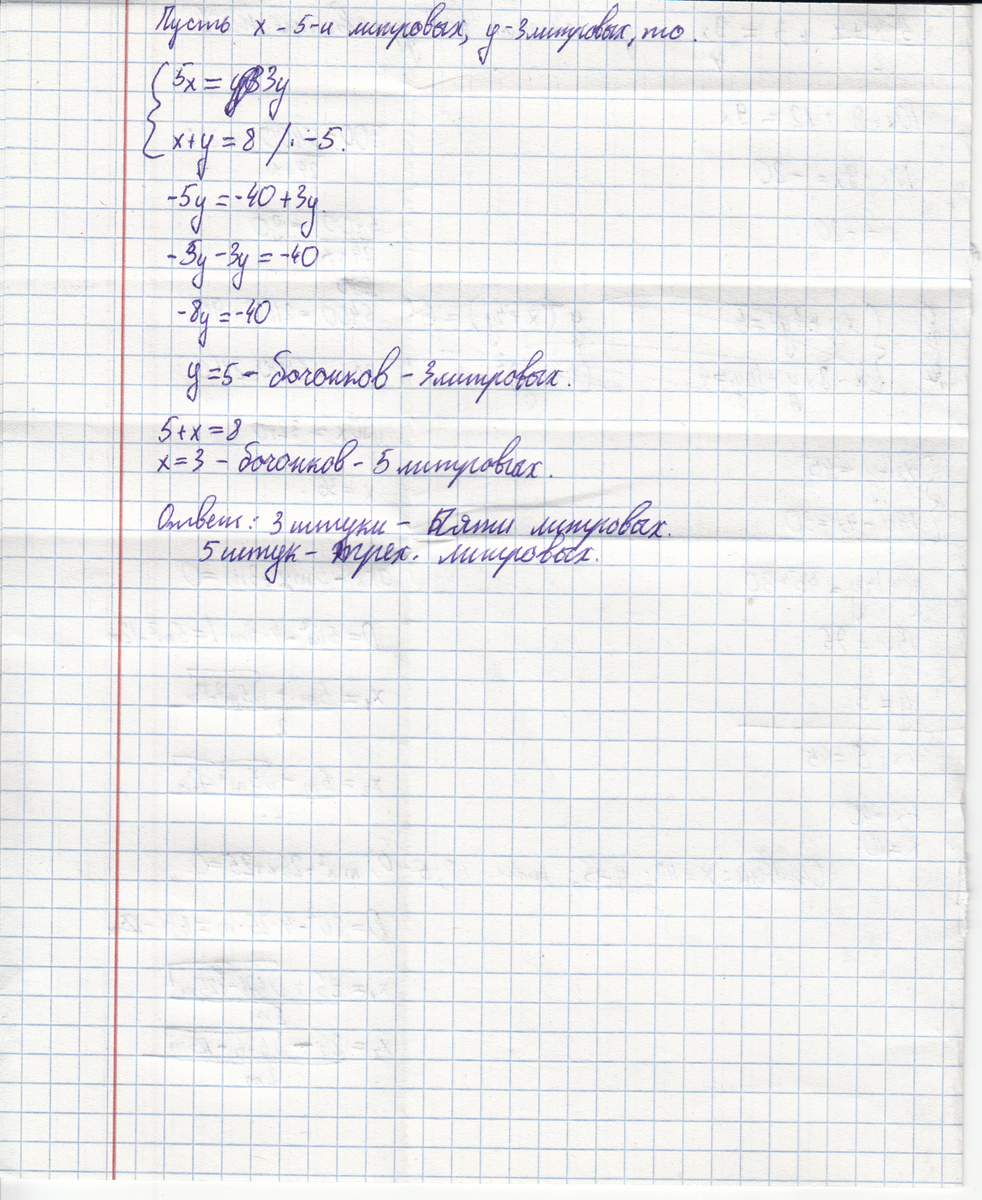 Пусть x - 5-и литровых, y - 3 литровых, то.
5x = 3y
x+y = 8 /·-5.
-5y = -40 + 3y.
-5y - 3y = -40
-8y = -40
y = 5 - бочонков - 3 литровых.
5 + x = 8
x = 3 - бочонков - 5 литровых.
Ответ: 3 штуки - Пяти литровых.
5 штук - трех. литровых.